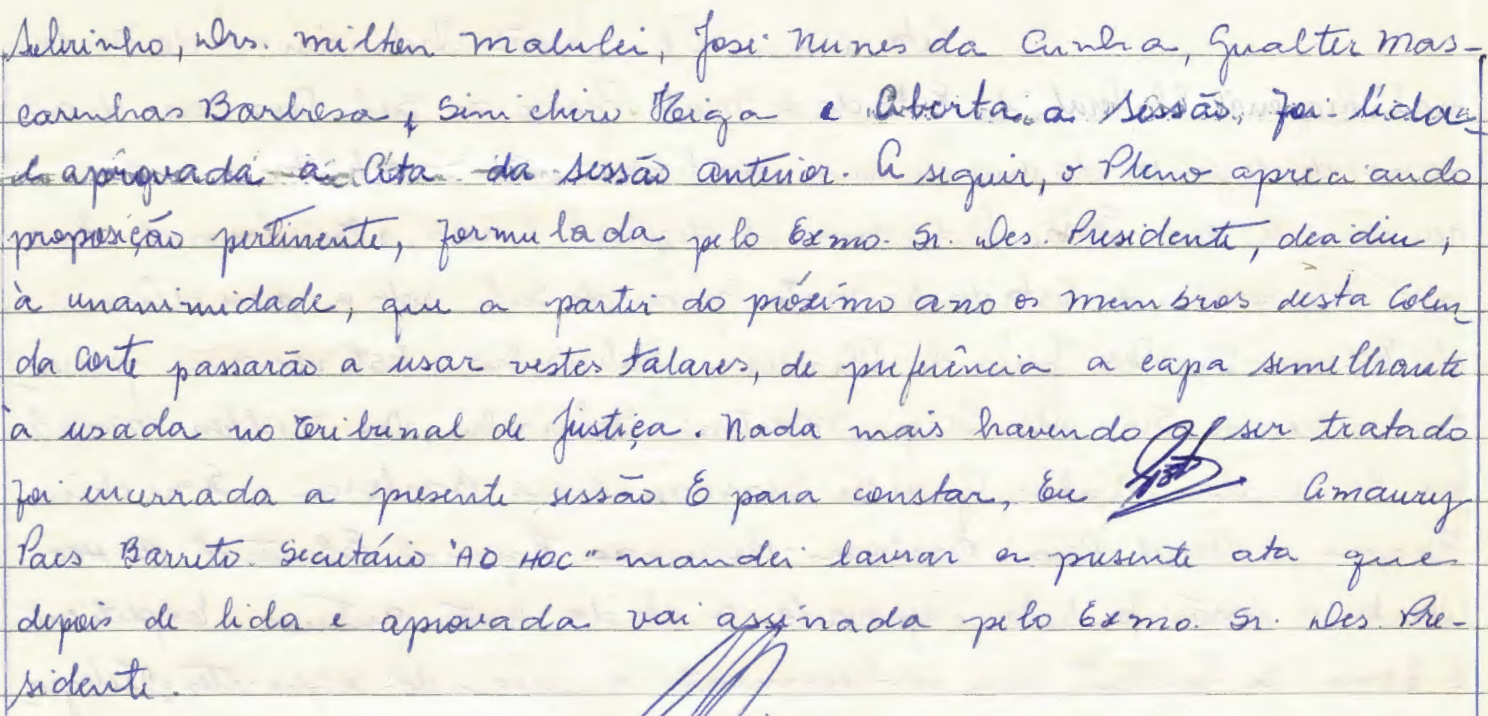 Sebrinho, Drs. Milton Malulei, José Nunes da Cunha, Gualter Mas-
carenhas Barbosa, Sinichiro Heiga e Aberta a Sessão, foi lida
e aprovada a Ata da sessão anterior. A seguir, o Pleno apreciando
proposição pertinente, formulada pelo Exmo. Sr. Des. Presidente, decidiu,
à unanimidade, que a partir do próximo ano os membros desta Colen
da Corte passarão a usar vestes talares, de preferência a capa semelhante
à usada no Tribunal de Justiça. Nada mais havendo a ser tratado
foi encerrada a presente sessão E para constar, Eu Amaury
Paes Barreto. Secretário "AD HOC" mandei lavrar a presente ata que
depois de lida e aprovada vai assinada pelo Exmo. Sr. Des. Pre-
sidente.